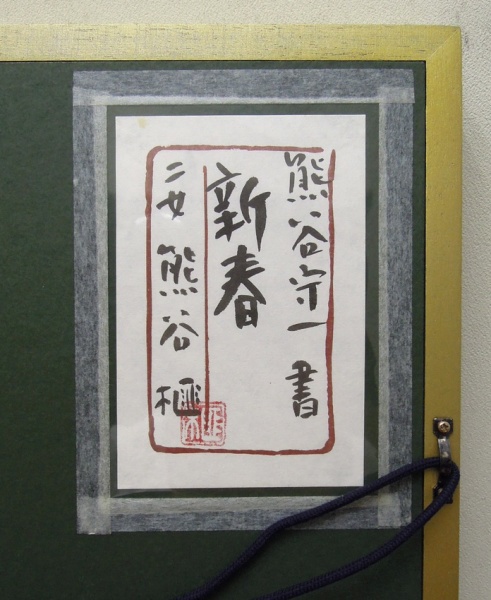 熊谷守一 書
新春
二女 熊谷 榧